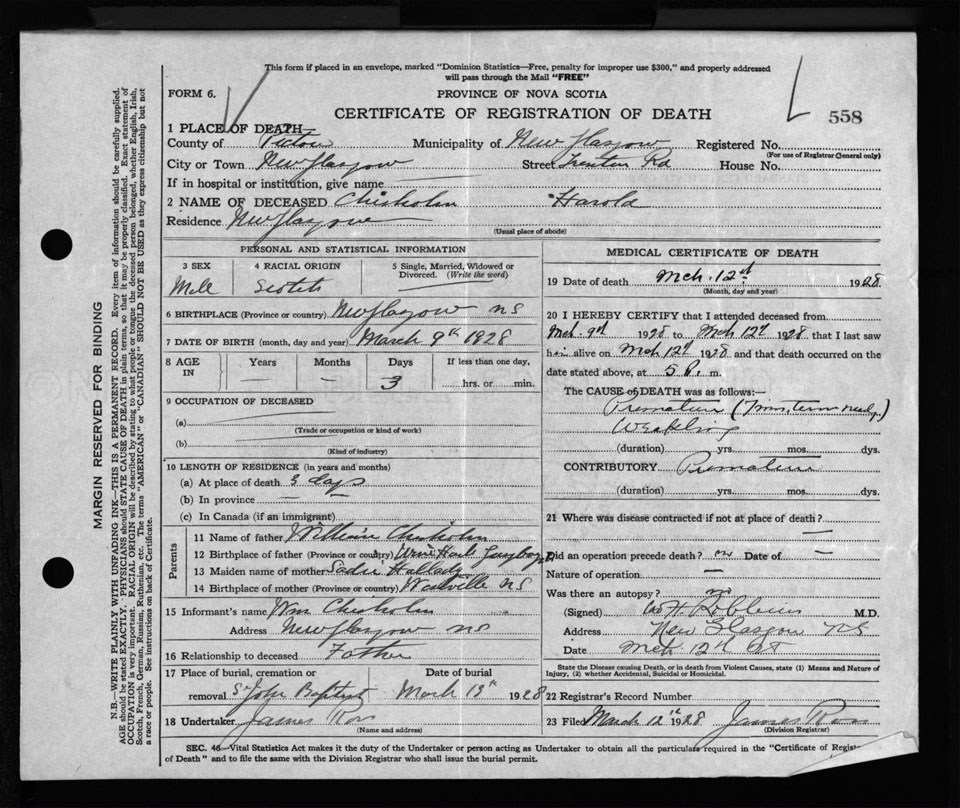 This form if placed in an envelope, marked "Dominion Statistics—Free, penalty for improper use $300," and properly addressed
will pass through the Mail "FREE"
FORM 6.
PROVINCE OF NOVA SCOTIA
CERTIFICATE OF REGISTRATION OF DEATH
558
1 PLACE OF DEATH—
County of Pictou Municipality of New Glasgow Registered No.
(For use of Registrar General only)
City or Town New Glasgow Street Trenton Rd House No.
If in hospital or institution, give name
2 NAME OF DECEASED Chisholm Harold
Residence New Glasgow
(Usual place of abode)
PERSONAL AND STATISTICAL INFORMATION
3 SEX 4 RACIAL ORIGIN 5 Single, Married, Widowed or Divorced. (Write the word)
Male Scotch
6 BIRTHPLACE (Province or country) New Glasgow NS
7 DATE OF BIRTH (month, day and year) March 9th 1928
8 AGE IN Years Months Days If less than one day,
— — 3 hrs. or min.
9 OCCUPATION OF DECEASED
(a)
(Trade or occupation or kind of work)
(b)
(Kind of industry)
10 LENGTH OF RESIDENCE (in years and months)
(a) At place of death 3 days
(b) In province —
(c) In Canada (if an immigrant)
Parents
11 Name of father William Chisholm
12 Birthplace of father (Province or country)
13 Maiden name of mother Sadie
14 Birthplace of mother (Province or country) NS
15 Informant's name Wm Chisholm
Address New Glasgow NS
16 Relationship to deceased Father
17 Place of burial, cremation or removal St John Baptist Date of burial March 13th 1928
18 Undertaker James Ross
(Name and address)
MEDICAL CERTIFICATE OF DEATH
19 Date of death Mch. 12th 1928
(Month, day and year)
20 I HEREBY CERTIFY that I attended deceased from
Mch. 9th 1928 to Mch 12th 1928 that I last saw
him alive on Mch 12th 1928 and that death occurred on the
date stated above, at 5 P. m.
The CAUSE of DEATH was as follows:—
Premature
(duration) yrs. mos. dys.
CONTRIBUTORY Premature
(duration) yrs. mos. dys.
21 Where was disease contracted if not at place of death?
—
Did an operation precede death? no Date of —
Nature of operation —
Was there an autopsy? no
(Signed) W. H. Robbins M.D.
Address New Glasgow NS
Date Mch 12th
State the Disease causing Death, or in death from Violent Causes, state (1) Means and Nature of
Injury, (2) whether Accidental, Suicidal or Homicidal.
22 Registrar's Record Number
23 Filed March 12th 1928 James Ross
(Division Registrar)
SEC. 46—Vital Statistics Act makes it the duty of the Undertaker or person acting as Undertaker to obtain all the particulars required in the "Certificate of
of Death" and to file the same with the Division Registrar who shall issue the burial permit.
MARGIN RESERVED FOR BINDING
N.B.—WRITE PLAINLY WITH UNFADING INK—THIS IS A PERMANENT RECORD. Every item of information should be carefully supplied.
AGE should be stated EXACTLY. PHYSICIANS should STATE CAUSE OF DEATH in plain terms, so that it may be properly classified. Exact statement of
OCCUPATION is very important. RACIAL ORIGIN will be described by stating to what people or tongue the deceased person belonged, whether English, Irish,
Scotch, French, German, Russian, Ruthenian, etc. The terms "AMERICAN" or "CANADIAN" SHOULD NOT BE USED as they express citizenship but not
a race or people. See instructions on back of Certificate.